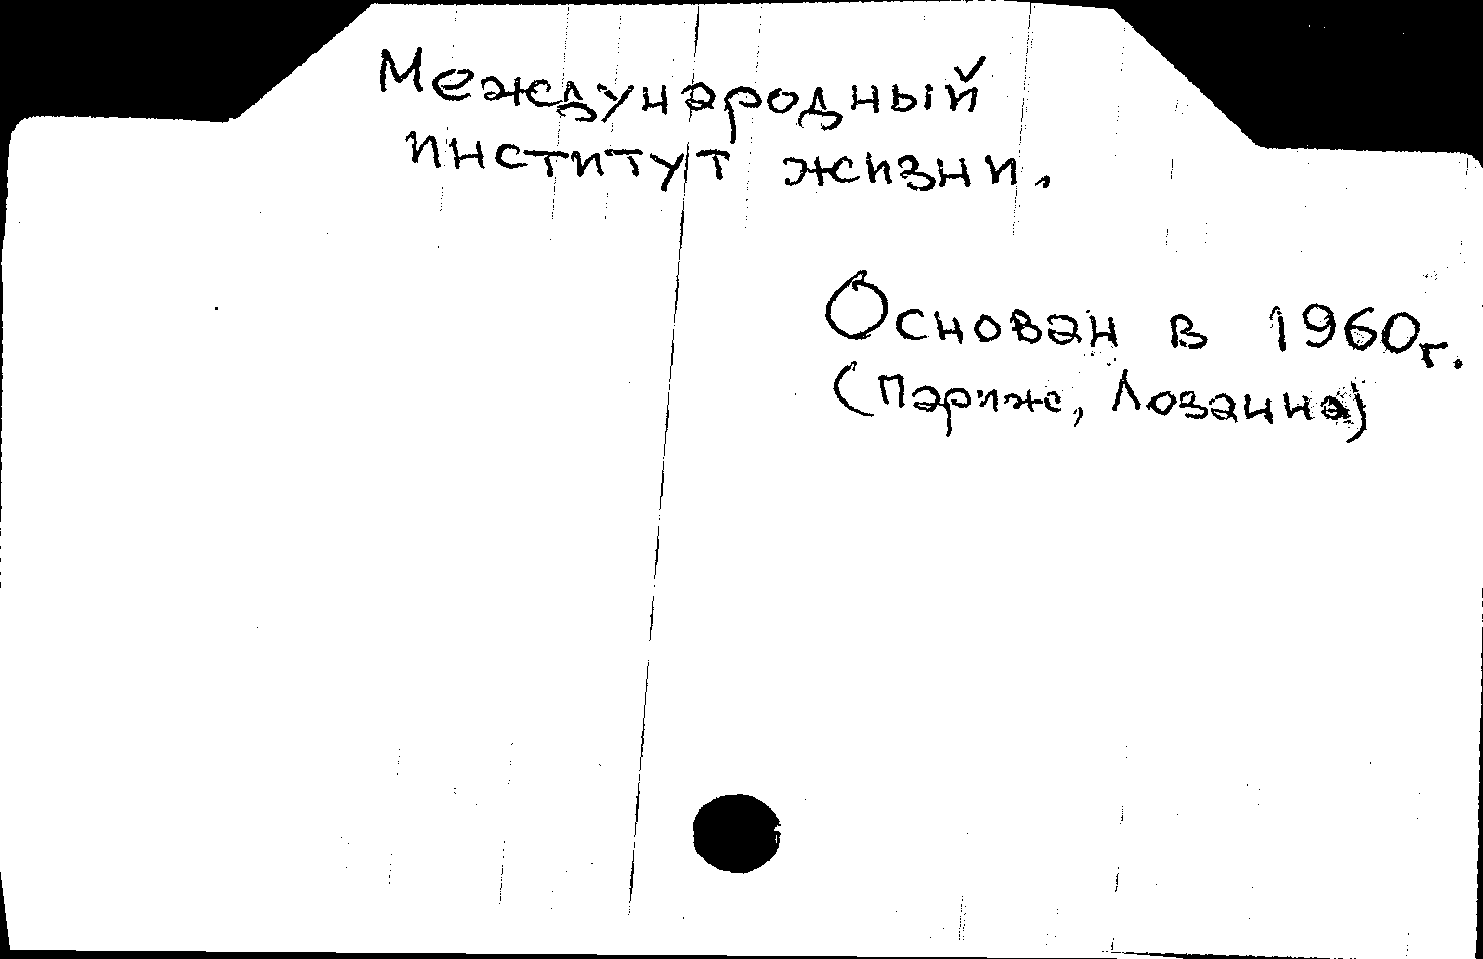 Международный
институт жизни.
Основан в 1960г.
(Париж, Лозанна)